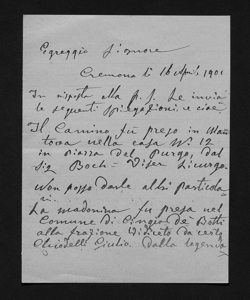 Egreggio Signore
Cremona li 16 Apri. 1901
In risposta alla p. s. Le invio
le seguenti spiegazioni e cioè
Il Camino fu preso in Man
tova nella casa N.º 12
in piazza del Purgo, dal
Sig Boch- Viser Licurgo.
Non posso darle altri particola
ri.
La madonina fu presa nel
Comune di Cingia de Botti
alla frazione da certo
Ghidelli Giulio dalla